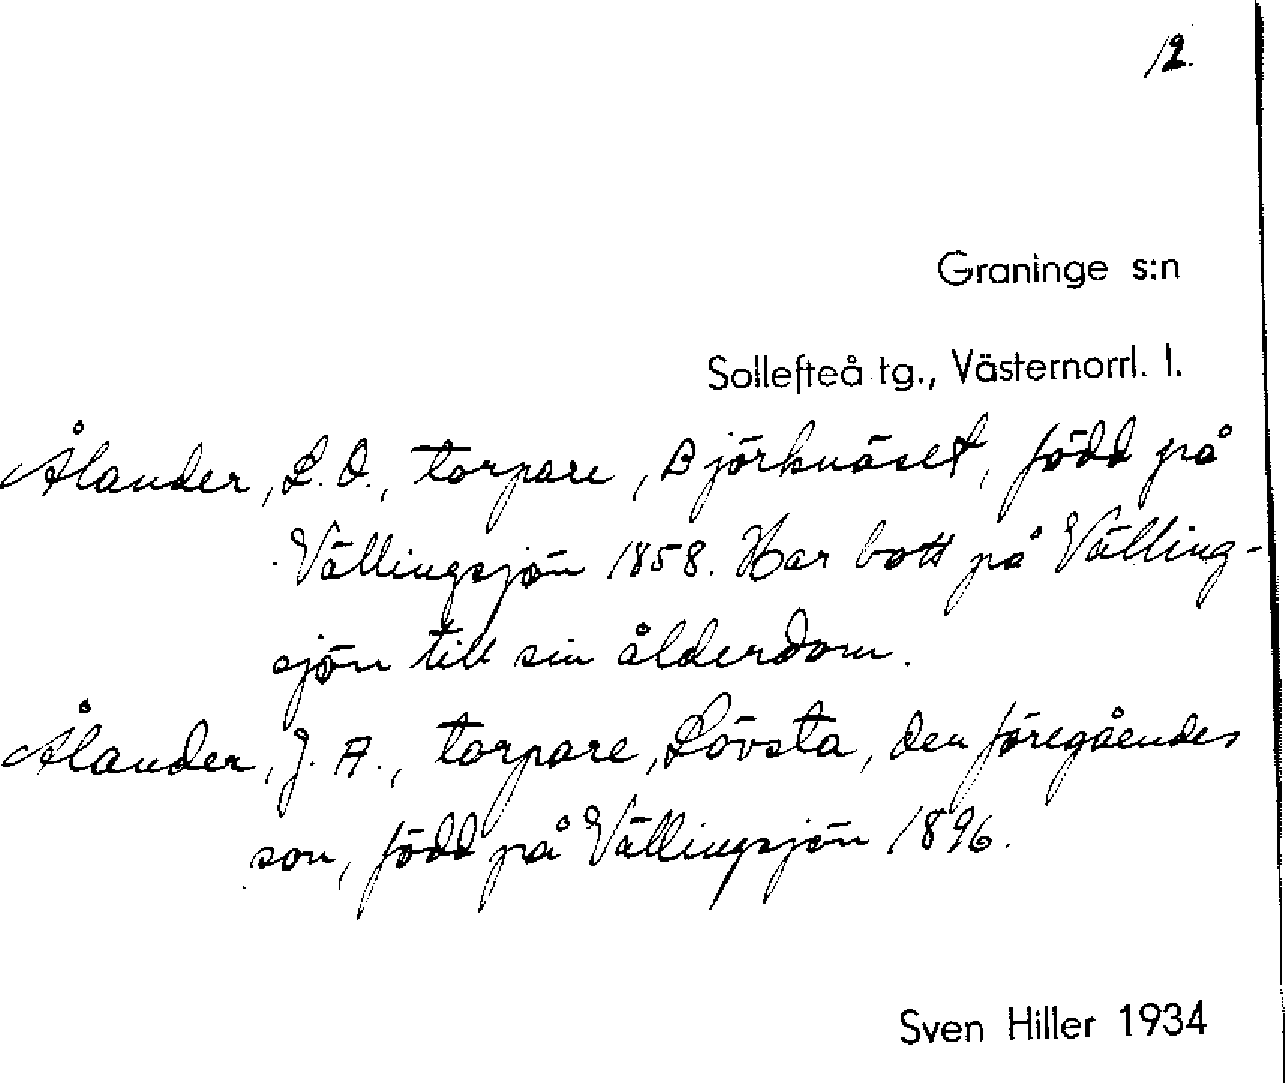 12.
Graninge s:n
Sollefteå tg., Västernorrl. l.
Ålander, L. O., torpare, Björknäset, född på
Vällingsjön 1858. Har bott på Välling-
sjön till sin ålderdom.
Ålander, J. A., torpare, Lövsta, den föregåendes
son, född på Vällingsjön 1896.
Sven Hiller 1934